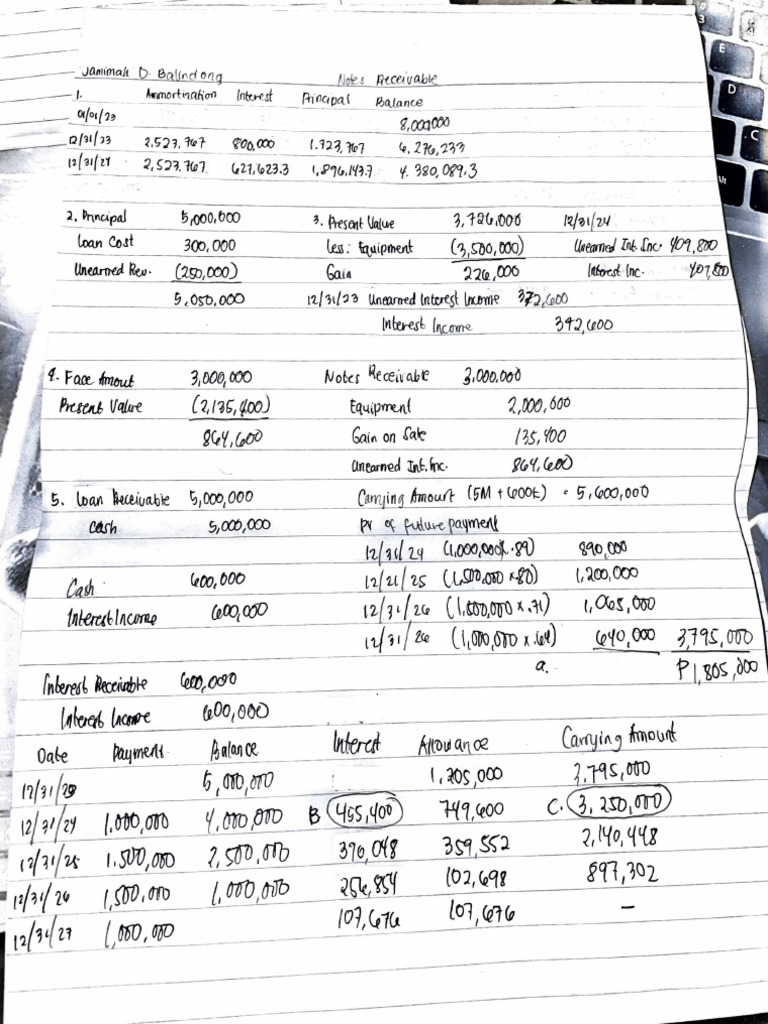 Jamimah D. Balindong Notes Receivable
1. Ammortization Interest Principal Balance
01/01/23 8,000,000
12/31/23 2,523,767 800,000 1,723,767 6,276,233
12/31/24 2,523,767 627,623.3 1,896,143.7 4,380,089.3
2. Principal 5,000,000 3. Present Value 3,726,000 12/31/24
Loan Cost 300,000 Less: Equipment (3,500,000) Unearned Int. Inc. 409,800
Unearned Rev. (250,000) Gain 226,000 Interest Inc. 409,800
5,050,000 12/31/23 Unearned Interest Income 372,600
Interest Income 372,600
4. Face Amout 3,000,000 Notes Receivable 3,000,000
Present Value (2,135,400) Equipment 2,000,000
864,600 Gain on Sale 135,400
Unearned Int. Inc. 864,600
5. Loan Receivable 5,000,000 Carrying Amount (5M + 600K) = 5,600,000
Cash 5,000,000 PV of future payment
12/31/24 (1,000,000 x .89) 890,000
Cash 600,000 12/21/25 (1,500,000 x 80) 1,200,000
Interest Income 600,000 12/31/26 (1,500,000 x .71) 1,065,000
12/31/26 (1,000,000 x .64) 640,000 3,795,000
a. P1,805,000
Interest Receivable 600,000
Interest Income 600,000
Date Payment Balance Interest Allowance Carrying Amount
12/31/20 5,000,000 1,205,000 3,795,000
12/31/24 1,000,000 4,000,000 B 455,400 749,600 C. 3,250,000
12/31/25 1,500,000 2,500,000 390,048 359,552 2,140,448
12/31/26 1,500,000 1,000,000 256,854 102,698 897,302
12/31/27 1,000,000 107,676 107,676 —